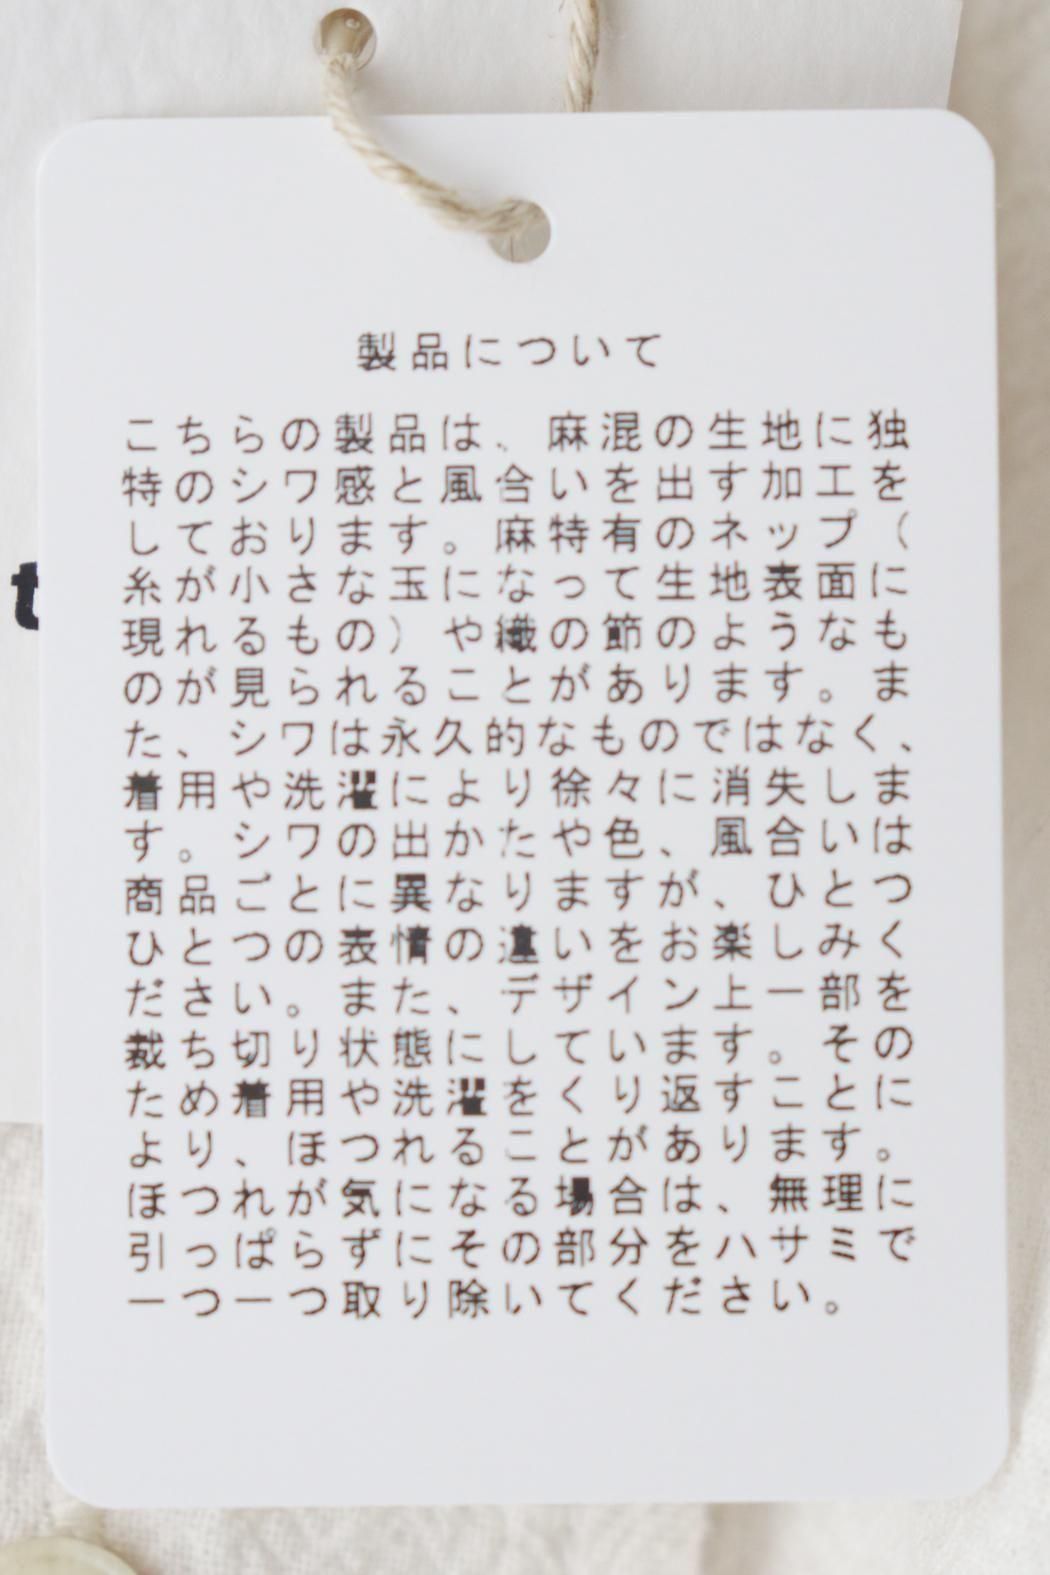 製品について
こちらの製品は、麻混の生地に独
特のシワ感と風合いを出す加工を
しております。麻特有のネップ（
糸が小さな玉になって生地表面に
現れるもの）や織の節のようなも
のが見られることがあります。ま
た、シワは永久的なものではなく、
着用や洗濯により徐々に消失しま
す。シワの出かたや色、風合いは
商品ごとに異なりますが、ひとつ
ひとつの表情の違いをお楽しみく
ださい。また、デザイン上一部を
裁ち切り状態にしています。その
ため着用や洗濯をくり返すことに
より、ほつれることがあります。
ほつれが気になる場合は、無理に
引っぱらずにその部分をハサミで
一つ一つ取り除いてください。
t